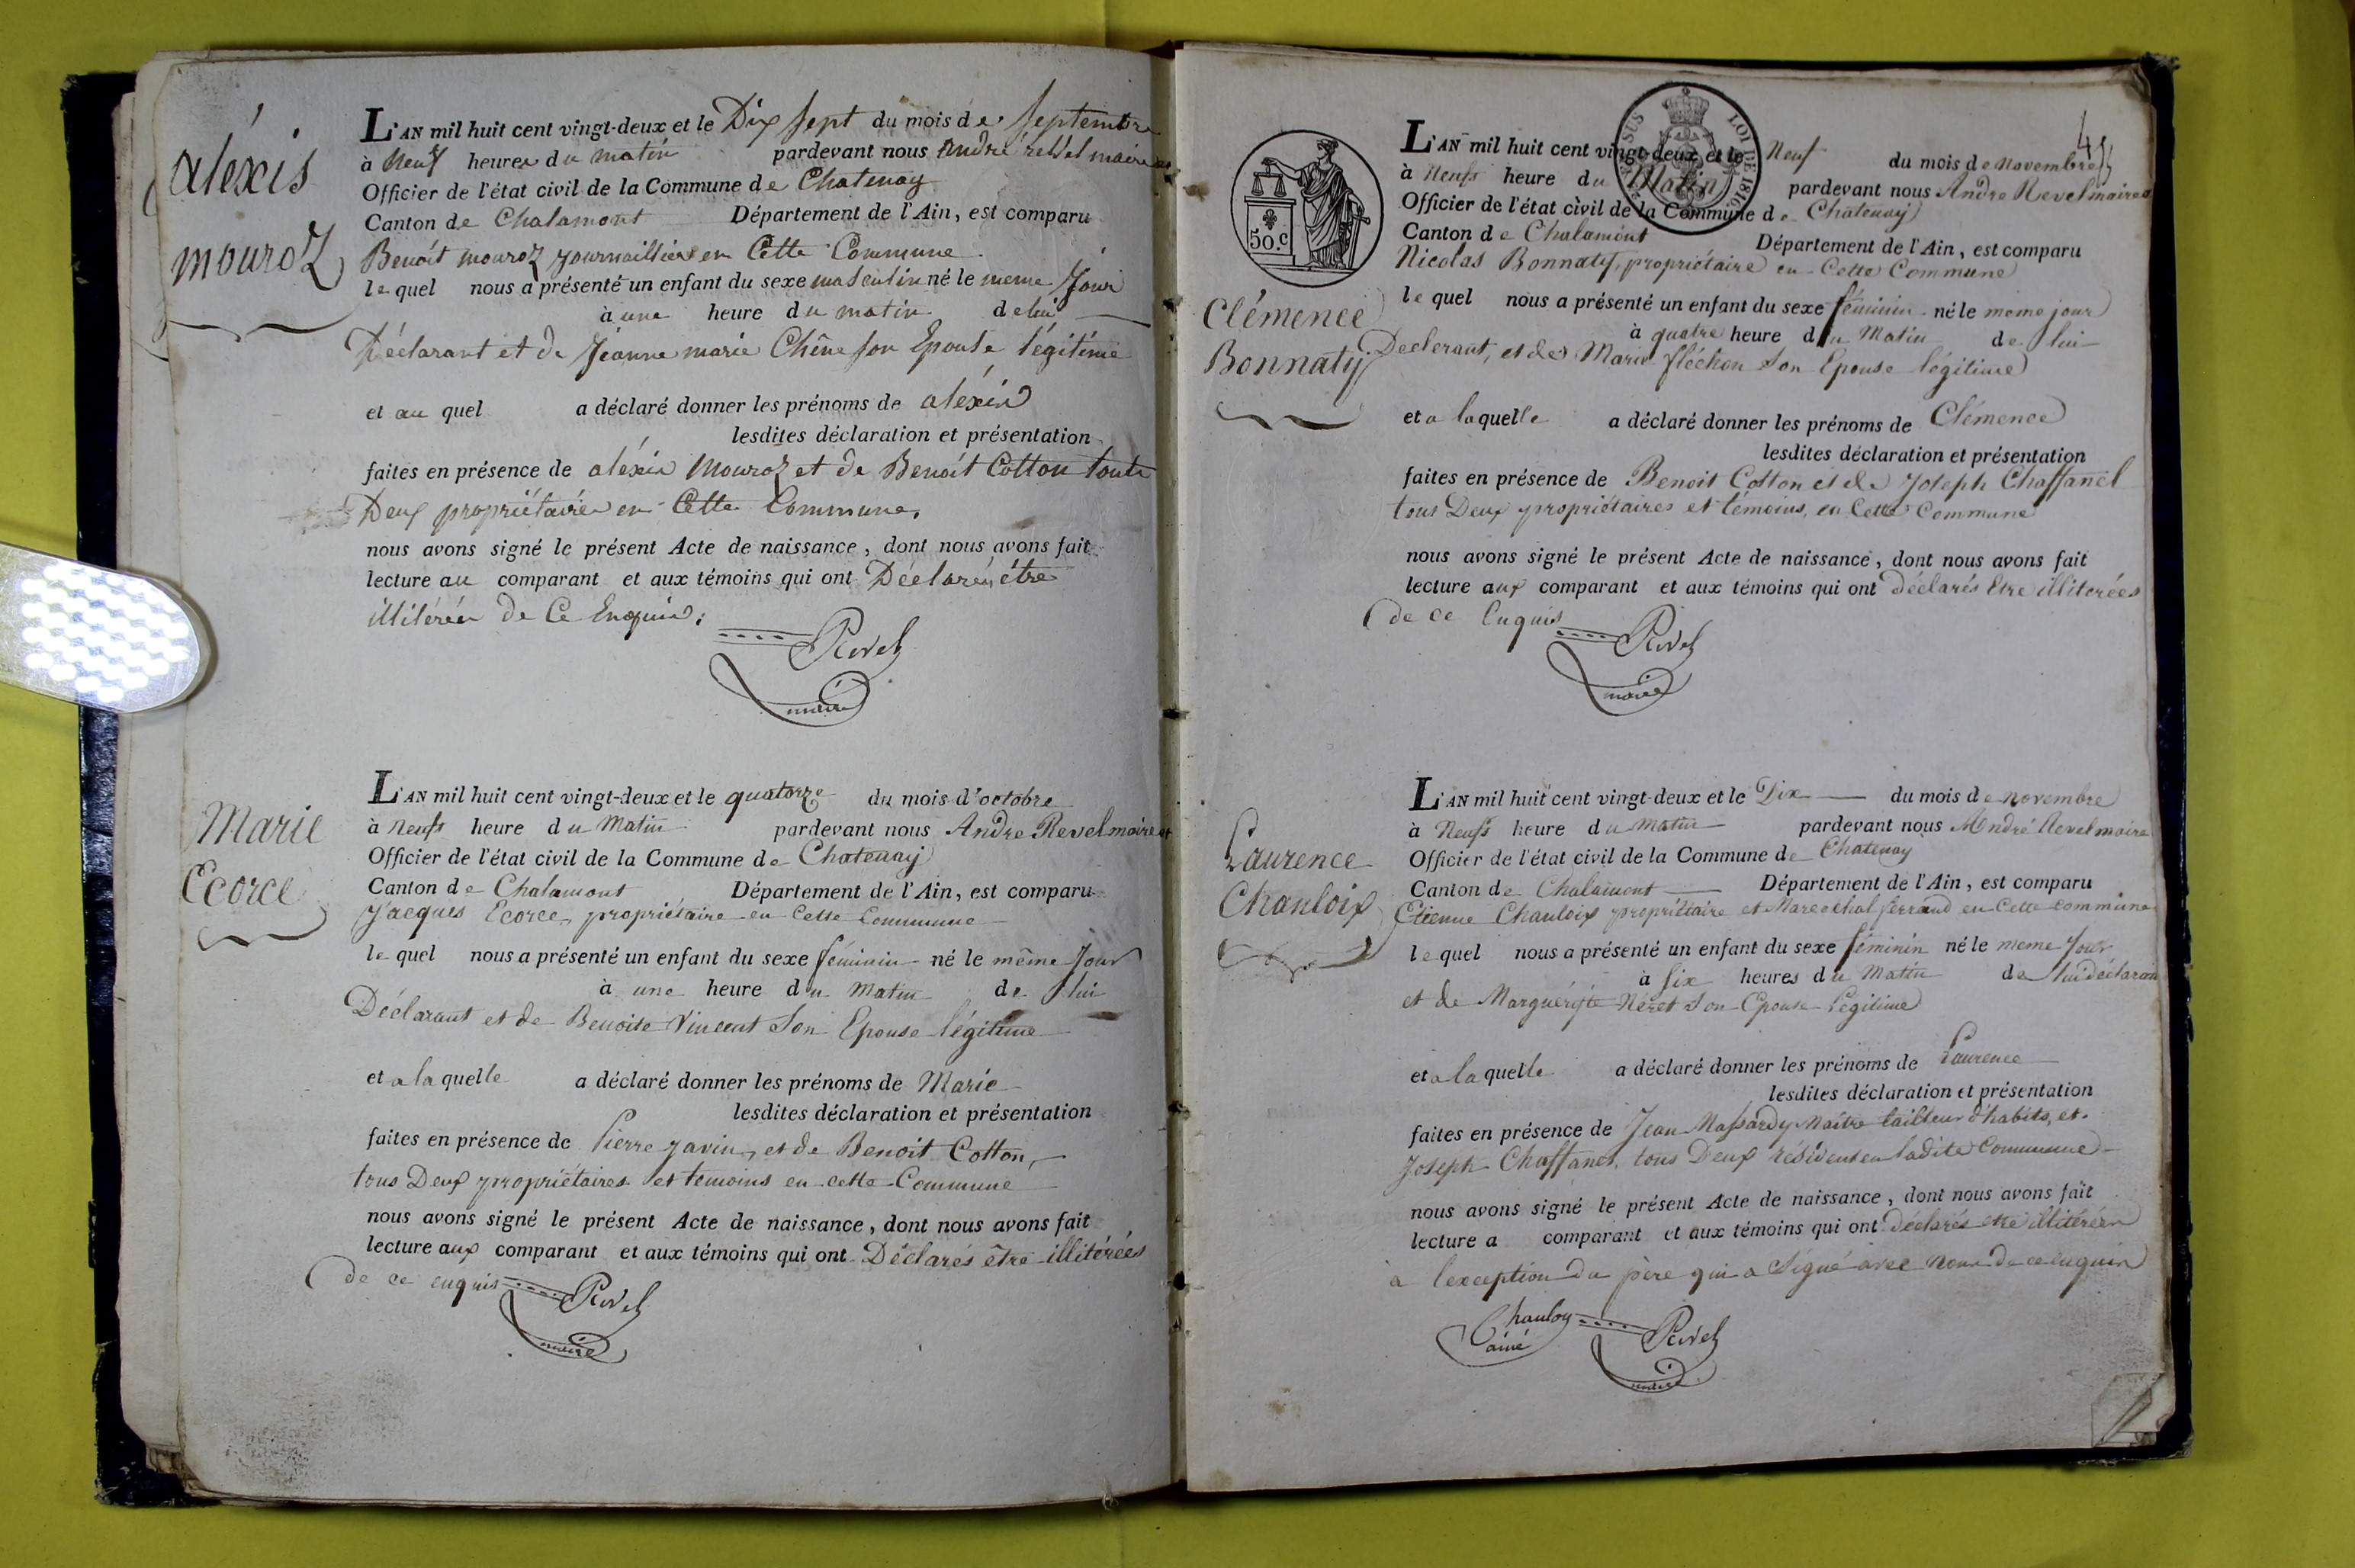 aléxis
mouroz
L'AN mil huit cent vingt-deux et le Dix sept du mois de septembre
à neuf heures du matin pardevant nous andré revel maire et
Officier de l'état civil de la Commune de Chatenay
Canton de Chalamont Département de l'Ain, est comparu
Benoit mouroz journaillier en Cette Commune
lequel nous a présenté un enfant du sexe masculin né le meme Jour
à une heure du matin de lui
Déclarant et de Jeanne marie Chêne son Epouse légitime
et au quel a déclaré donner les prénoms de aléxis
lesdites déclaration et présentation
faites en présence de aléxis Mouroz et de Benoit Cotton touts
Deux propriétaires en Cette Commune,
nous avons signé le présent Acte de naissance, dont nous avons fait
lecture au comparant et aux témoins qui ont Déclarés être
illitérés de Ce Enquis:
Revel
maire
Marie
Ecorce
L'AN mil huit cent vingt-deux et le quatorze du mois d'octobre
à Neufs heure du Matin pardevant nous Andre Revel maire et
Officier de l'état civil de la Commune de Chatenay
Canton de Chalamont Département de l'Ain, est comparu
Jacques Ecorce, propriétaire en Cette Commune
lequel nous a présenté un enfant du sexe féminin né le même Jour
à une heure du Matin de lui
Déclarant et de Benoite Vincent Son Epouse légitime
et a la quelle a déclaré donner les prénoms de Marie
lesdites déclaration et présentation
faites en présence de Pierre Javin, et de Benoit Cotton,
tous Deux propriétaires et temoins en cette Commune
nous avons signé le présent Acte de naissance, dont nous avons fait
lecture aux comparant et aux témoins qui ont Déclarés être illitérées
de ce enquis
Revel
maire
50.c
LOI DE 1816
Clémence
Bonnaty
L'AN mil huit cent vingt-deux et le Neuf du mois de novembre
à Neufs heure du Matin pardevant nous Andre Revel maire
Officier de l'état civil de la Commune de Chatenay
Canton de Chalamont Département de l'Ain, est comparu
Nicolas Bonnaty, propriétaire en Cette Commune
lequel nous a présenté un enfant du sexe féminin né le meme jour
à quatre heure du Matin de lui
Declerant, et de Marie fléchon Son Epouse légitime
et a laquelle a déclaré donner les prénoms de Clémence
lesdites déclaration et présentation
faites en présence de Benoit Cotton et de Joseph Chaffanel
tous Deux propriétaires et témoins, en Cette Commune
nous avons signé le présent Acte de naissance, dont nous avons fait
lecture aux comparant et aux témoins qui ont déclarés Etre illiterées
de ce Enquis
Revel
maire
Laurence
Chauloix
L'AN mil huit cent vingt-deux et le Dix du mois de novembre
à Neufs heure du Matin pardevant nous André Revel maire
Officier de l'état civil de la Commune de Chatenay
Canton de Chalamont Département de l'Ain, est comparu
Etienne Chauloix propriétaire et Marechal ferrand en Cette commune
lequel nous a présenté un enfant du sexe féminin né le meme Jour
à six heures du Matin de lui déclarant
et de Marguérite Néret Son Epouse légitime
et a la quelle a déclaré donner les prénoms de Laurence
lesdites déclaration et présentation
faites en présence de Jean Massardy Maître tailleur d'habits, et
Joseph Chaffanel, tous Deux résident en ladite Commune
nous avons signé le présent Acte de naissance, dont nous avons fait
lecture a comparant et aux témoins qui ont déclarés etre illitérés
a l'exception du père qui a Signé avec nous de ce enquis
Chauloy
ainé
Revel
maire